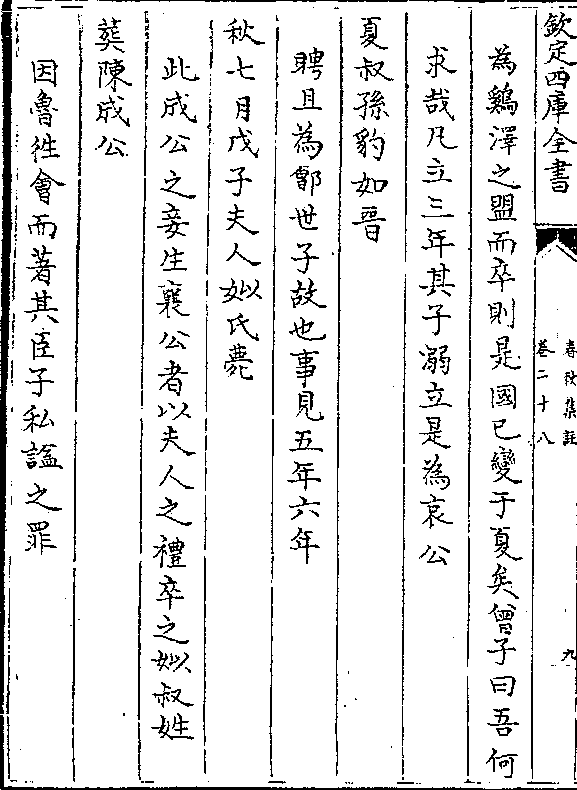 欽定四庫全書
春秋集註
卷二十八
九
為鷄澤之盟而卒則是國已變于夏矣曾子曰吾何
求哉凡立三年其子溺立是為哀公
夏叔孫豹如晉
聘且為鄫世子故也事見五年六年
秋七月戊子夫人姒氏薨
此成公之妾生襄公者以夫人之禮卒之姒叔姓
葬陳成公
因魯徃會而著其臣子私諡之罪